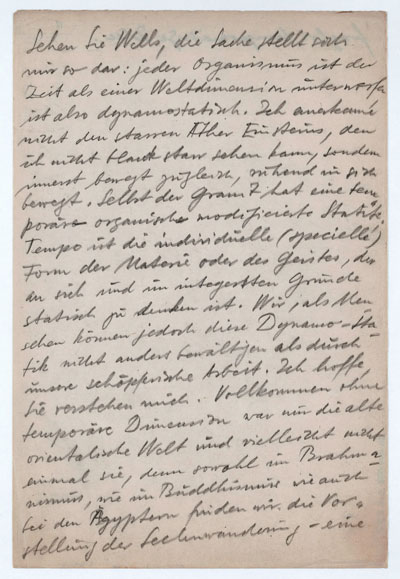 Sehen Sie Wells, die Sache stellt sich
mir so dar: jeder Organismus ist der
Zeit als einer Weltdimension unterworfen
ist also dynamostatisch. Ich anerkenne
nicht den starren Äther Einsteins, den
ich nicht starr sehen kann, sondern
innerst bewegt zugleich, ruhend in sich
bewegt. Selbst der Granit hat eine tem=
poräre organische modificierte Statik.
Tempo ist die individuelle (specielle!)
Form der Materie oder des Geistes, die
an sich und im Grunde
statisch zu denken ist. Wir, als Men
schen können jedoch diese Dynamo-Sta
tik nicht anders bewältigen als durch
unsere schöpferische Arbeit. Ich hoffe,
Sie verstehen mich. Vollkommen ohne
temporäre Dimension war nur die alte
orientalische Welt und vielleicht nicht
einmal sie, denn sowohl im Brahma=
nismus, wie im Buddhismus wie auch
bei den Ägyptern finden wir die Vor=
stellung der Seelenwanderung – eine